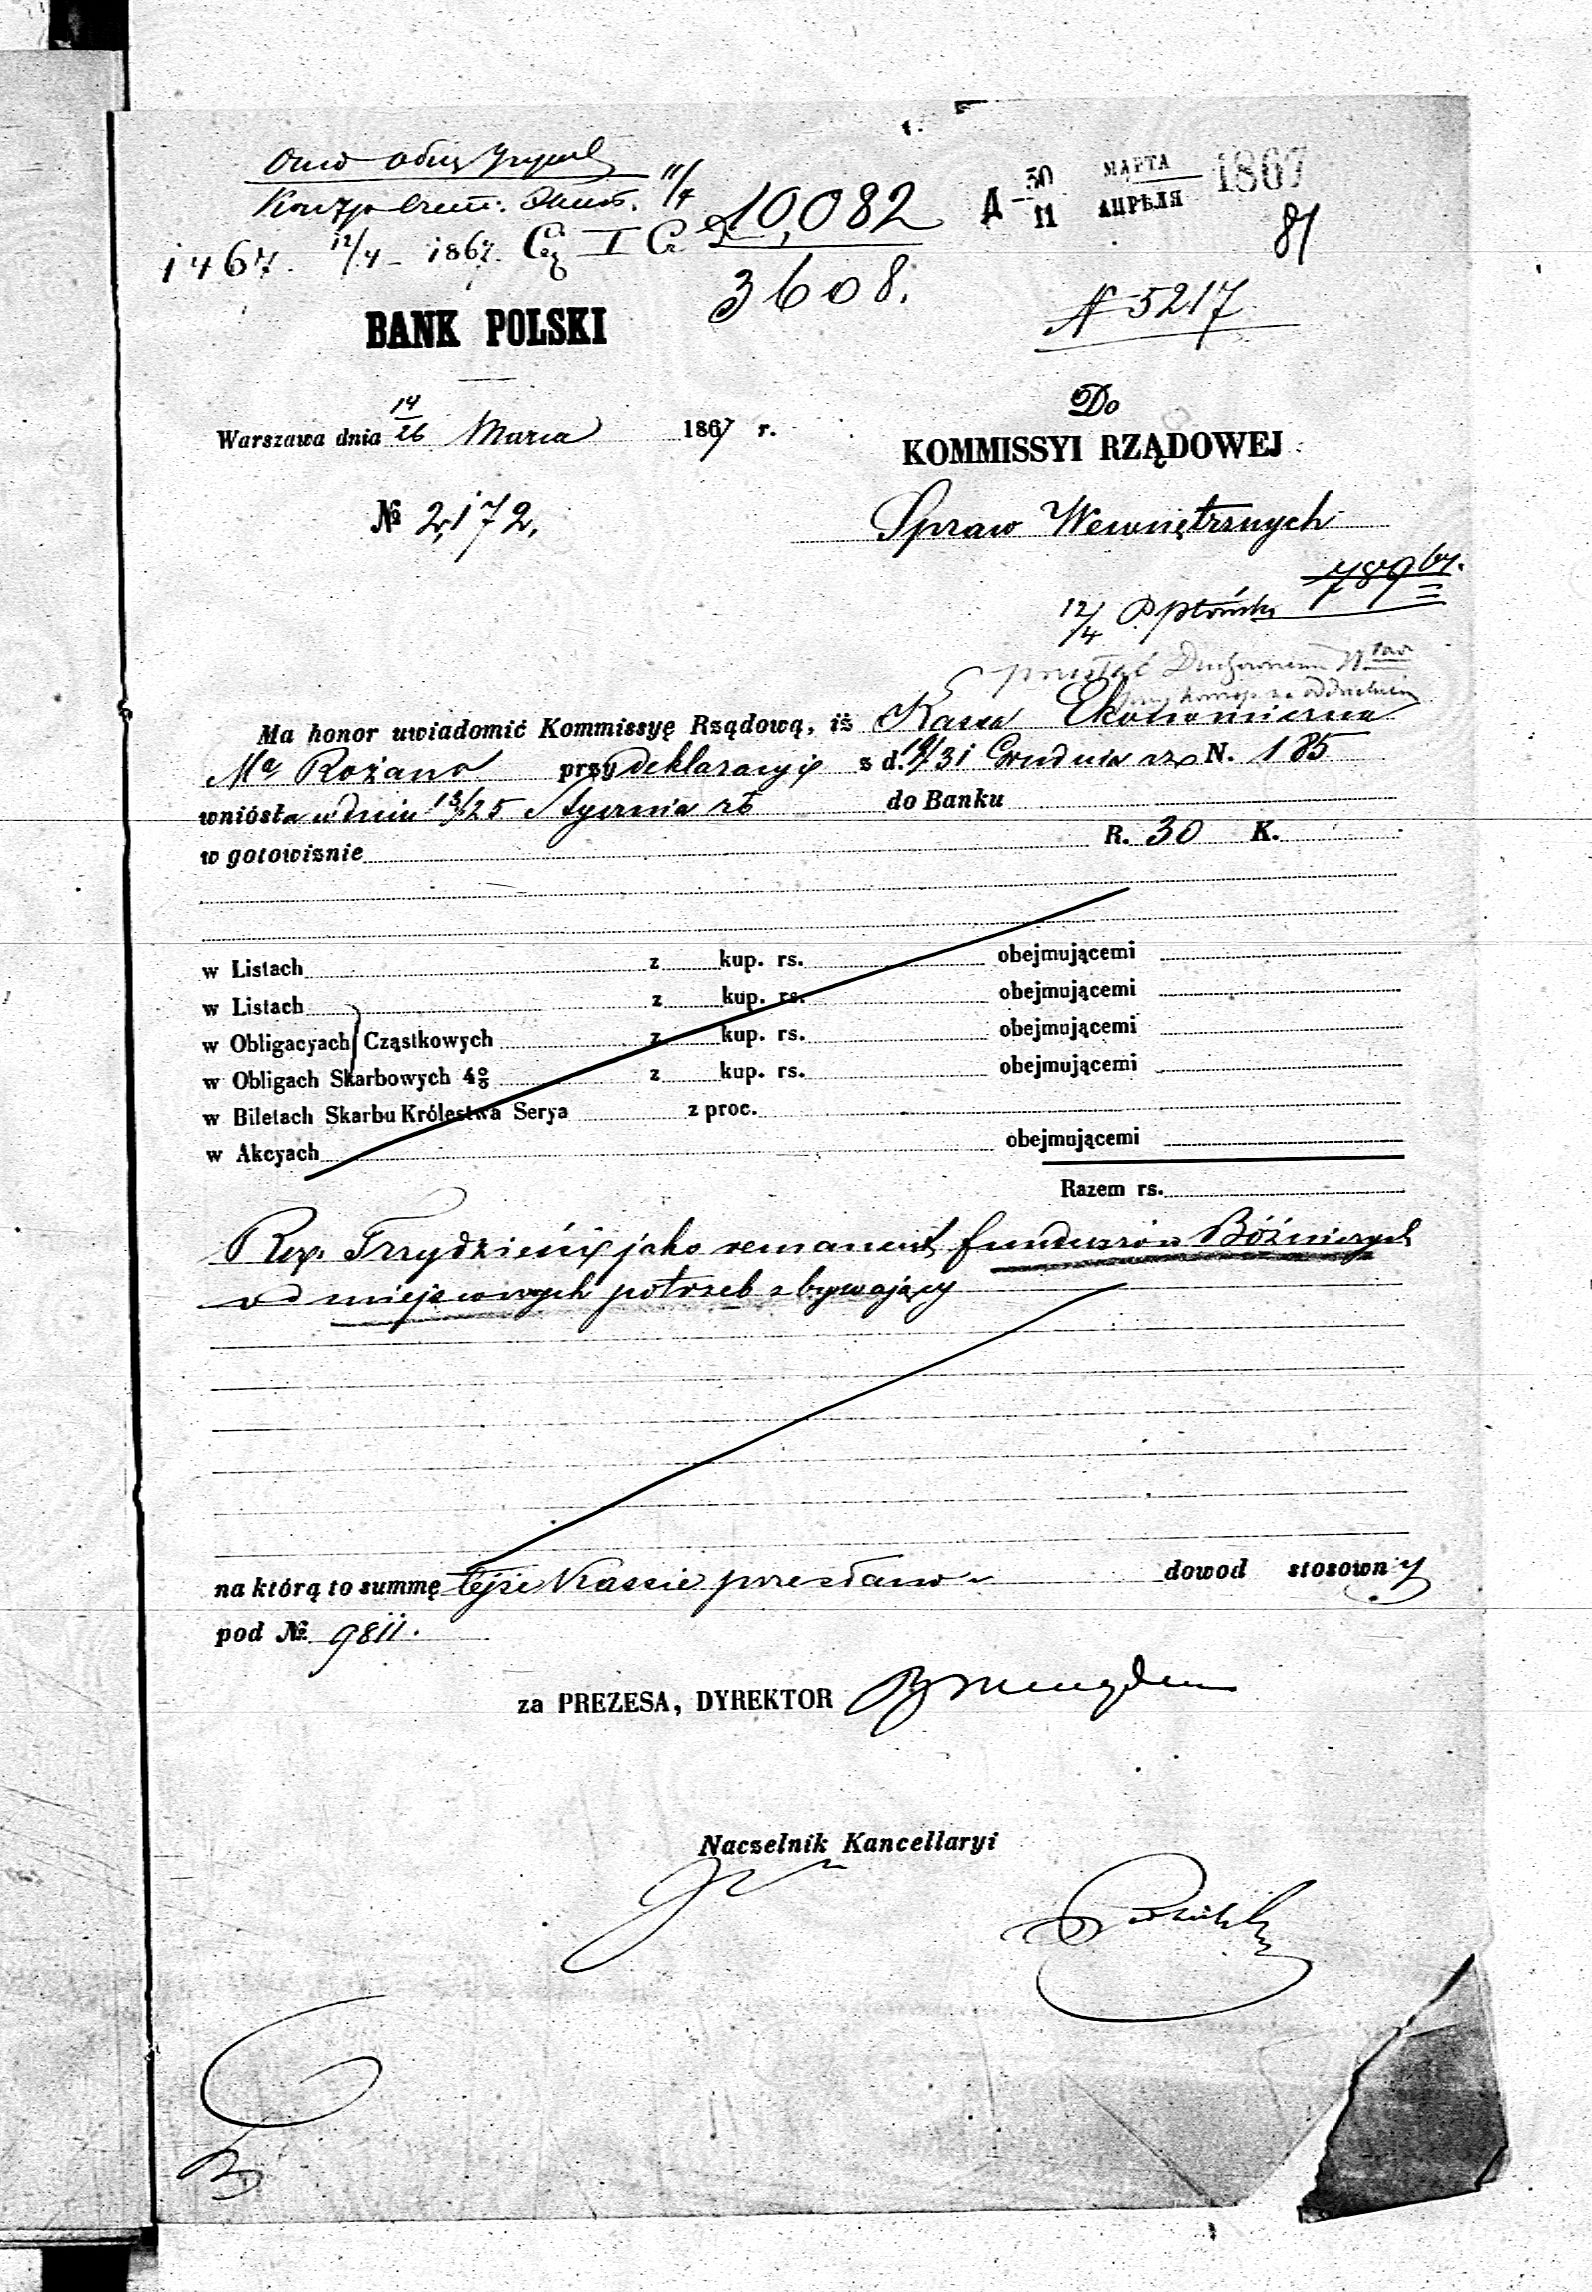 10,082
Д 30/11 МАРТА/АПРѢЛЯ 1867
81
1467. 12/4 – 1867.
3608.
N 5217
BANK POLSKI
Do
Warszawa dnia 14/26 Marca 1867 r.
KOMMISSYI RZĄDOWEJ
№ 2,172.
Spraw Wewnętrznych
12/4
Ma honor uwiadomić Kommissyę Rządową, iż Kassa Ekonomiczna
Ma Rożana przy deklaracyi z d. 19/31 Grudnia N. 185
wniósła w dniu 13/25 Stycznia rb do Banku
w gotowiznie R. 30 K.
w Listach z kup. rs. obejmującemi
w Listach z kup. rs. obejmującemi
w Obligacyach Cząstkowych z kup. rs. obejmującemi
w Obligach Skarbowych 4% z kup. rs. obejmującemi
w Biletach Skarbu Królestwa Serya z proc.
w Akcyach obejmującemi
Razem rs.
Trzydzieści jako remanent funduszów Bóżniczych
od miejscowych potrzeb zbywający
na którą to summę tejże Kassie przesłano dowod stosowny
pod № 9811.
za PREZESA, DYREKTOR
Naczelnik Kancellaryi